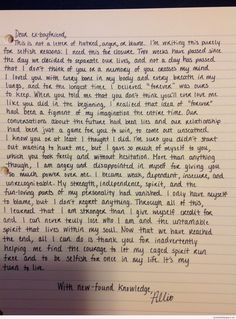 Dear ex-boyfriend,
This is not a letter of hatred, anger, or blame. I'm writing this purely
for selfish reasons: I need this for closure. Two weeks have passed since
the day we decided to separate our lives, and not a day has passed
that I don't think of you or a memory of you crosses my mind.
I loved you with every bone in my body and every breath in my
lungs, and for the longest time I believed "forever" was ours
to keep. When you told me that you don't think you'll ever love me
like you did in the beginning, I realized that idea of "forever"
had been a figment of my imagination the entire time. Our
conversations about the future had been lies and our relationship
had been just a game for you to win, to come out unscathed.
I know you or at least I thought I did. I'm sure you didn't start
out wanting to hurt me, but I gave so much of myself to you,
which you took freely and without hesitation. More than anything
though, I am angry and disappointed in myself for giving you
so much power over me. I became weak, dependent, insecure, and
unrecognizable. My strength, independence, spirit, and the
fun-loving parts of my personality had vanished. I only have myself
to blame, but I don't regret anything. Through all of this,
I learned that I am stronger than I give myself credit for
and I can never truly lose who I am and the untamable
spirit that lives within my soul. Now that we have reached
the end, all I can do is thank you for inadvertently
helping me find the courage to let my caged spirit run
free and to be selfish for once in my life. It's my
turn to live.
With new-found knowledge,
Allie